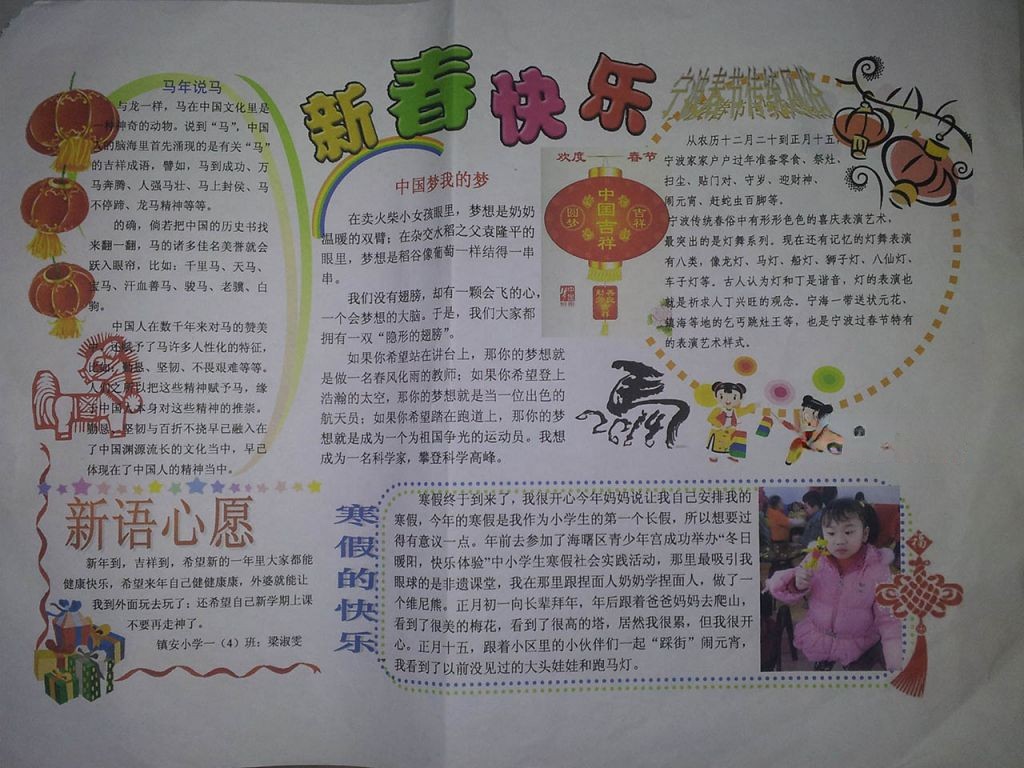 新春快乐
马年说马
与龙一样，马在中国文化里是
一种神奇的动物。说到“马”，中国
人的脑海里首先涌现的是有关“马”
的吉祥成语，譬如，马到成功、万
马奔腾、人强马壮、马上封侯、马
不停蹄、龙马精神等等。
的确，倘若把中国的历史书找
来翻一翻，马的诸多佳名美誉就会
跃入眼帘，比如：千里马、天马、
宝马、汗血善马、骏马、老骥、白
驹。
中国人在数千年来对马的赞美
还赋予了马许多人性化的特征，
比如，勤恳、坚韧、不畏艰难等等。
人们之所以把这些精神赋予马，缘
于中国人本身对这些精神的推崇。
勤恳、坚韧与百折不挠早已融入在
了中国渊源流长的文化当中，早已
体现在了中国人的精神当中。
中国梦我的梦
在卖火柴小女孩眼里，梦想是奶奶
温暖的双臂；在杂交水稻之父袁隆平的
眼里，梦想是稻谷像葡萄一样结得一串
串。
我们没有翅膀，却有一颗会飞的心，
一个会梦想的大脑。于是，我们大家都
拥有一双“隐形的翅膀”。
如果你希望站在讲台上，那你的梦想就
是做一名春风化雨的教师；如果你希望登上
浩瀚的太空，那你的梦想就是当一位出色的
航天员；如果你希望踏在跑道上，那你的梦
想就是成为一个为祖国争光的运动员。我想
成为一名科学家，攀登科学高峰。
欢度 春节
圆梦
中国吉祥
吉祥
宁波春节传统风俗
从农历十二月二十到正月十五，
宁波家家户户过年准备零食、祭灶、
扫尘、贴门对、守岁、迎财神、
闹元宵、赶蛇虫百脚等。
宁波传统春俗中有形形色色的喜庆表演艺术，
最突出的是灯舞系列。现在还有记忆的灯舞表演
有八类，像龙灯、马灯、船灯、狮子灯、八仙灯、
车子灯等。古人认为灯和丁是谐音，灯的表演也
就是祈求人丁兴旺的观念。宁海一带送状元花，
镇海等地的乞丐跳灶王等，也是宁波过春节特有
的表演艺术样式。
新语心愿
新年到，吉祥到，希望新的一年里大家都能
健康快乐，希望来年自己健健康康，外婆就能让
我到外面玩去玩了；还希望自己新学期上课
不要再走神了。
镇安小学一（4）班：梁淑雯
寒假的快乐
寒假终于到来了，我很开心今年妈妈说让我自己安排我的
寒假，今年的寒假是我作为小学生的第一个长假，所以想要过
得有意议一点。年前去参加了海曙区青少年宫成功举办“冬日
暖阳，快乐体验”中小学生寒假社会实践活动，那里最吸引我
眼球的是非遗课堂，我在那里跟捏面人奶奶学捏面人，做了一
个维尼熊。正月初一向长辈拜年，年后跟着爸爸妈妈去爬山，
看到了很美的梅花，看到了很高的塔，居然我很累，但我很开
心。正月十五，跟着小区里的小伙伴们一起“踩街”闹元宵，
我看到了以前没见过的大头娃娃和跑马灯。
福